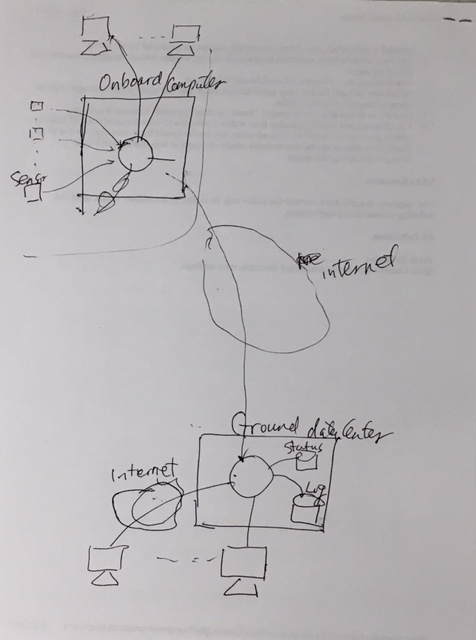 Onboard Computer
Sensor
internet
Ground data Center
Status
Log
Internet